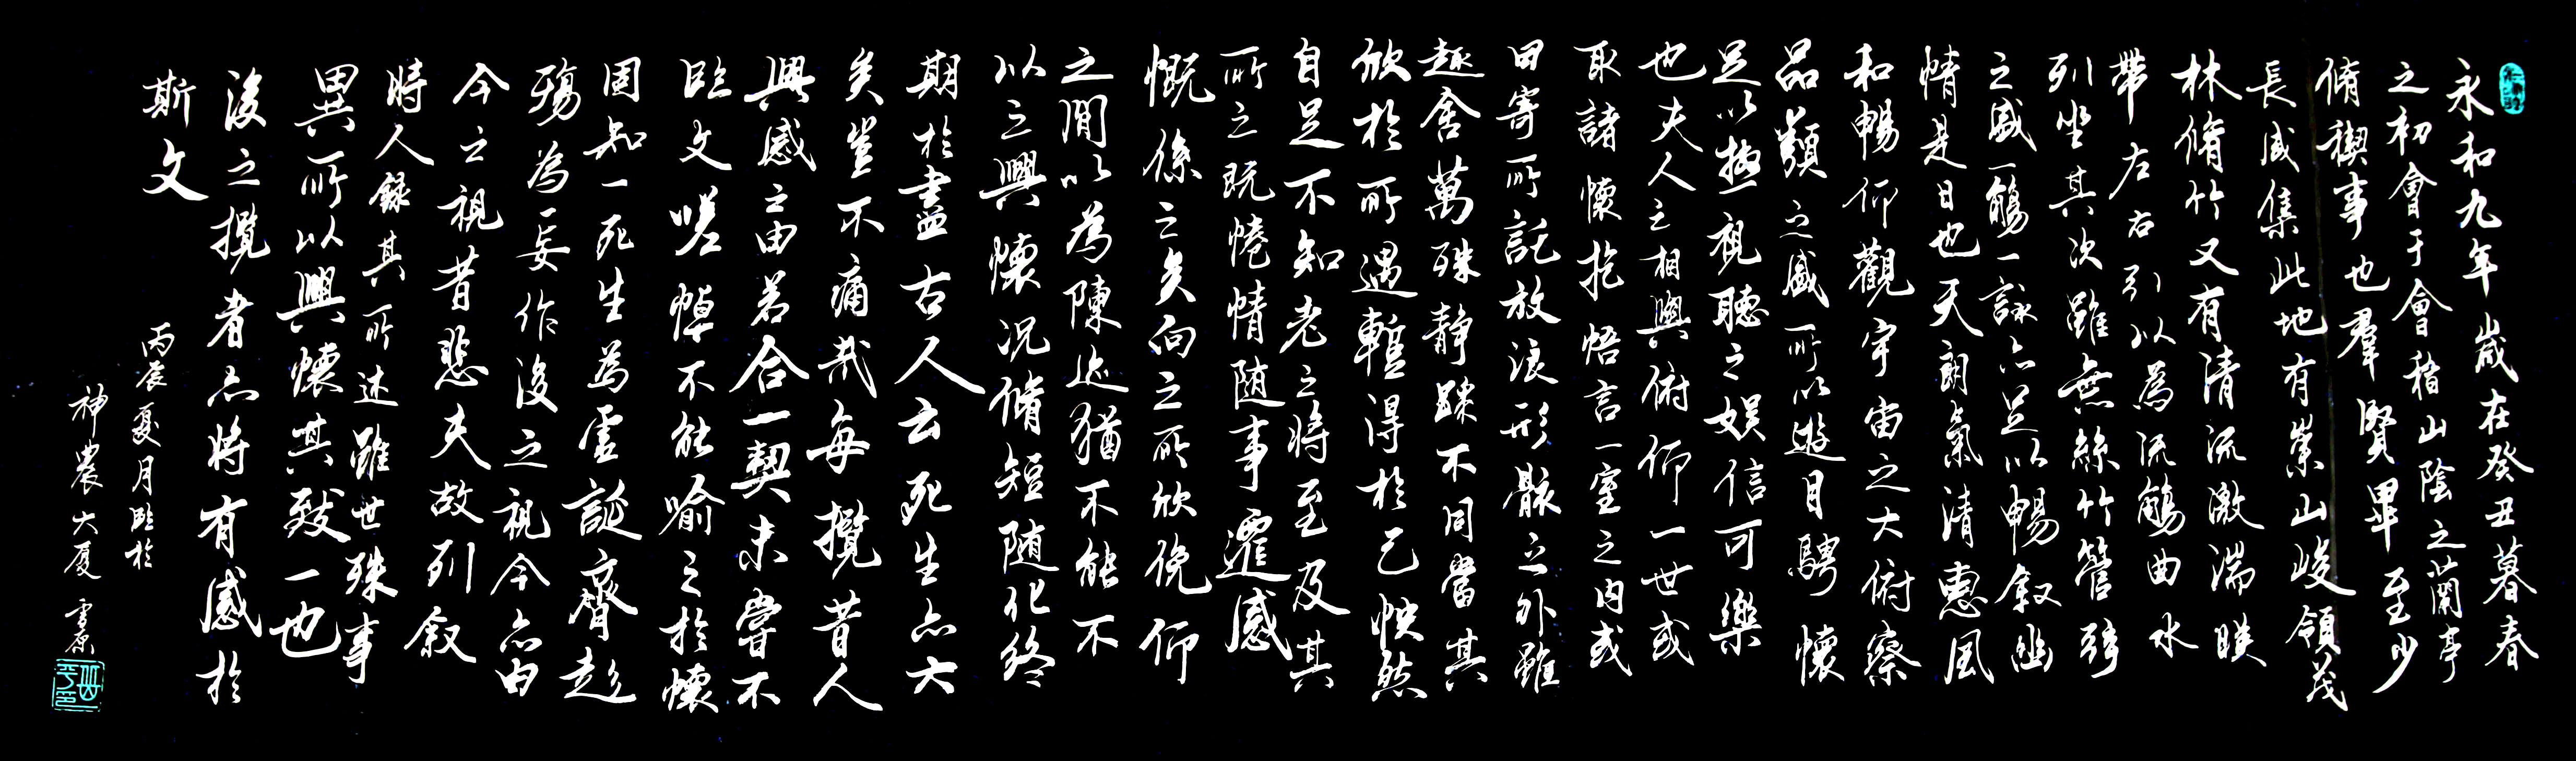 永和九年歲在癸丑暮春
之初會于會稽山陰之蘭亭
脩稧事也羣賢畢至少
長咸集此地有崇山峻領茂
林脩竹又有清流激湍暎
帶左右引以為流觴曲水
列坐其次雖無絲竹管弦
之盛一觴一詠亦足以暢叙幽
情是日也天朗氣清惠風
和暢仰觀宇宙之大俯察
品類之盛所以遊目騁懷
足以極視聽之娛信可樂
也夫人之相與俯仰一世或
取諸懷抱悟言一室之內或
因寄所託放浪形骸之外雖
趣舍萬殊靜躁不同當其
欣於所遇暫得於己怏然
自足不知老之將至及其
所之既惓情随事遷感
慨係之矣向之所欣俛仰
之閒以為陳迹猶不能不
以之興懷況脩短随化終
期於盡古人云死生亦大
矣豈不痛哉每攬昔人
興感之由若合一契未嘗不
臨文嗟悼不能喻之於懷
固知一死生為虛誕齊彭
殤為妄作後之視今亦由
今之視昔悲夫故列叙
時人錄其所述雖世殊事
異所以興懷其致一也
後之攬者亦將有感於
斯文
丙辰夏月臨於
神農大廈